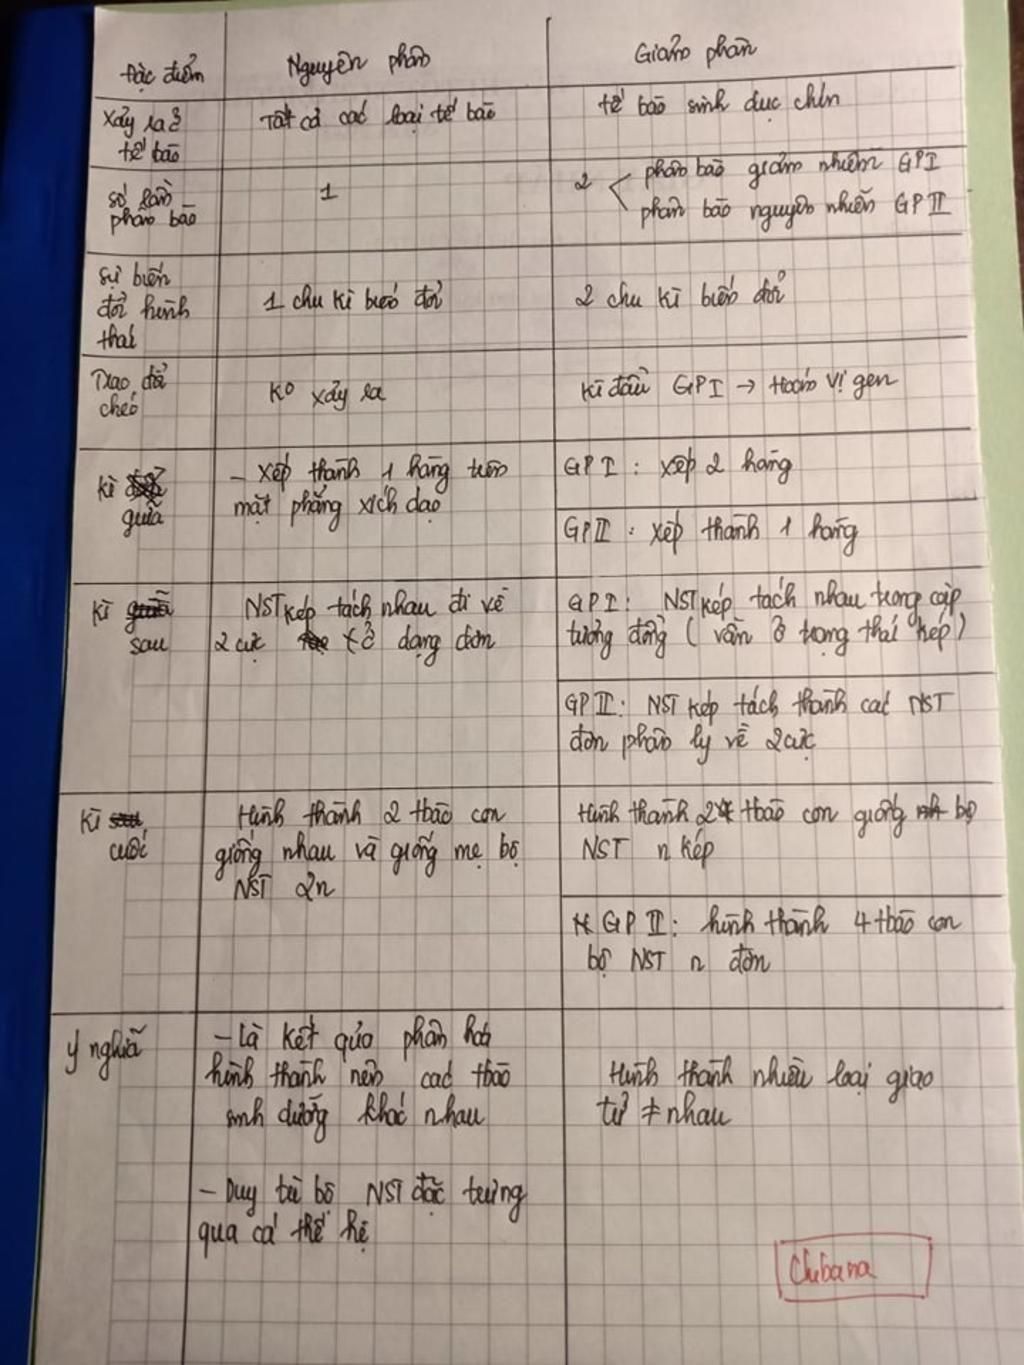 Đặc điểm
Nguyên phân
Giảm phân
Xảy ra ở
tế bào
Tất cả các loại tế bào
tế bào sinh dục chín
số lần
phân bào
1
2
phân bào giảm nhiễm GPI
phân bào nguyên nhiễm GPII
sự biến
đổi hình
thái
1 chu kì biến đổi
2 chu kì biến đổi
Trao đổi
chéo
Ko xảy ra
Kì đầu GPI → Hoán vị gen
kì
giữa
- Xếp thành 1 hàng trên
mặt phẳng xích đạo
GPI : xếp 2 hàng
GPII : xếp thành 1 hàng
kì
sau
NST kép tách nhau đi về
2 cực ở dạng đơn
GPI : NST kép tách nhau trong cặp
tương đồng ( vẫn ở trạng thái kép )
GPII : NST kép tách thành các NST
đơn phân ly về 2 cực
kì
cuối
Hình thành 2 tbào con
giống nhau và giống mẹ bộ
NST 2n
Hình thành 2 tbào con giống bộ
NST n kép
GPII : hình thành 4 tbào con
bộ NST n đơn
Ý nghĩa
- Là kết quả phân hoá
hình thành nên các tbào
sinh dưỡng khác nhau
- Duy trì bộ NST đặc trưng
qua cá thế hệ
Hình thành nhiều loại giao
tử ≠ nhau
Chibana